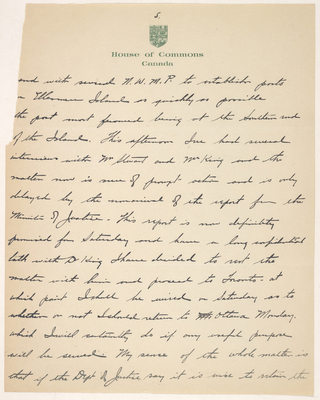 5.
House of Commons
Canada
and with several N.W.M.P. to establish posts
on Ellesmere Island as quickly as possible
the post most favored being at the Southern end
of the Island. This afternoon I've had several
interviews with Mr Stewart and Mr King and the
matter now is sure of prompt action and is only
delayed by the nonarrival of the report from the
Minister of Justice. This report is now definitely
promised for Saturday and have a long confidential
talk with Dr King I have decided to rest the
matter with him and proceed to Toronto - at
which point I shall be wired on Saturday as to
whether or not I should return to Ottawa Monday,
which I will certainly do if any useful purpose
will be served. My sense of the whole matter is
that if the Dept of Justice say it is wise to retain the